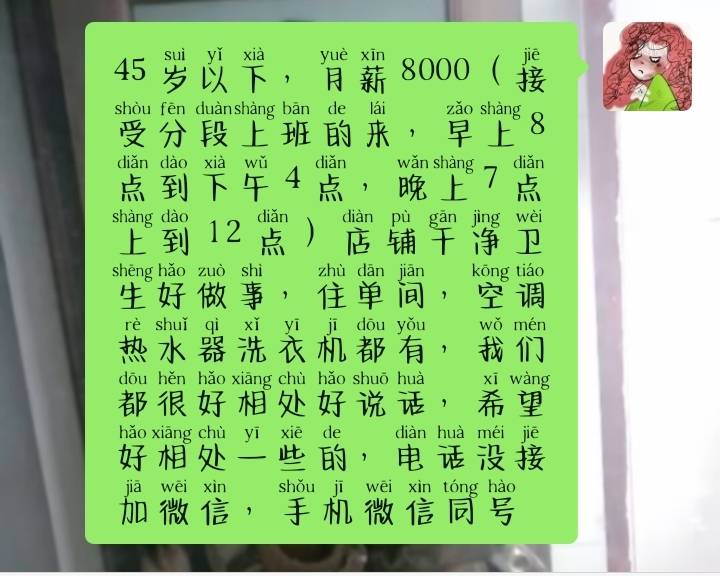 suì yǐ xià yuè xīn jiē
45岁以下，月薪8000（接
shòu fēn duàn shàng bān de lái zǎo shàng
受分段上班的来，早上8
diǎn dào xià wǔ diǎn wǎn shàng diǎn
点到下午4点，晚上7点
shàng dào diǎn diàn pù gān jìng wèi
上到12点）店铺干净卫
shēng hǎo zuò shì zhù dān jiān kōng tiáo
生好做事，住单间，空调
rè shuǐ qì xǐ yī jī dōu yǒu wǒ mén
热水器洗衣机都有，我们
dōu hěn hǎo xiāng chù hǎo shuō huà xī wàng
都很好相处好说话，希望
hǎo xiāng chù yī xiē de diàn huà méi jiē
好相处一些的，电话没接
jiā wēi xìn shǒu jī wēi xìn tóng hào
加微信，手机微信同号